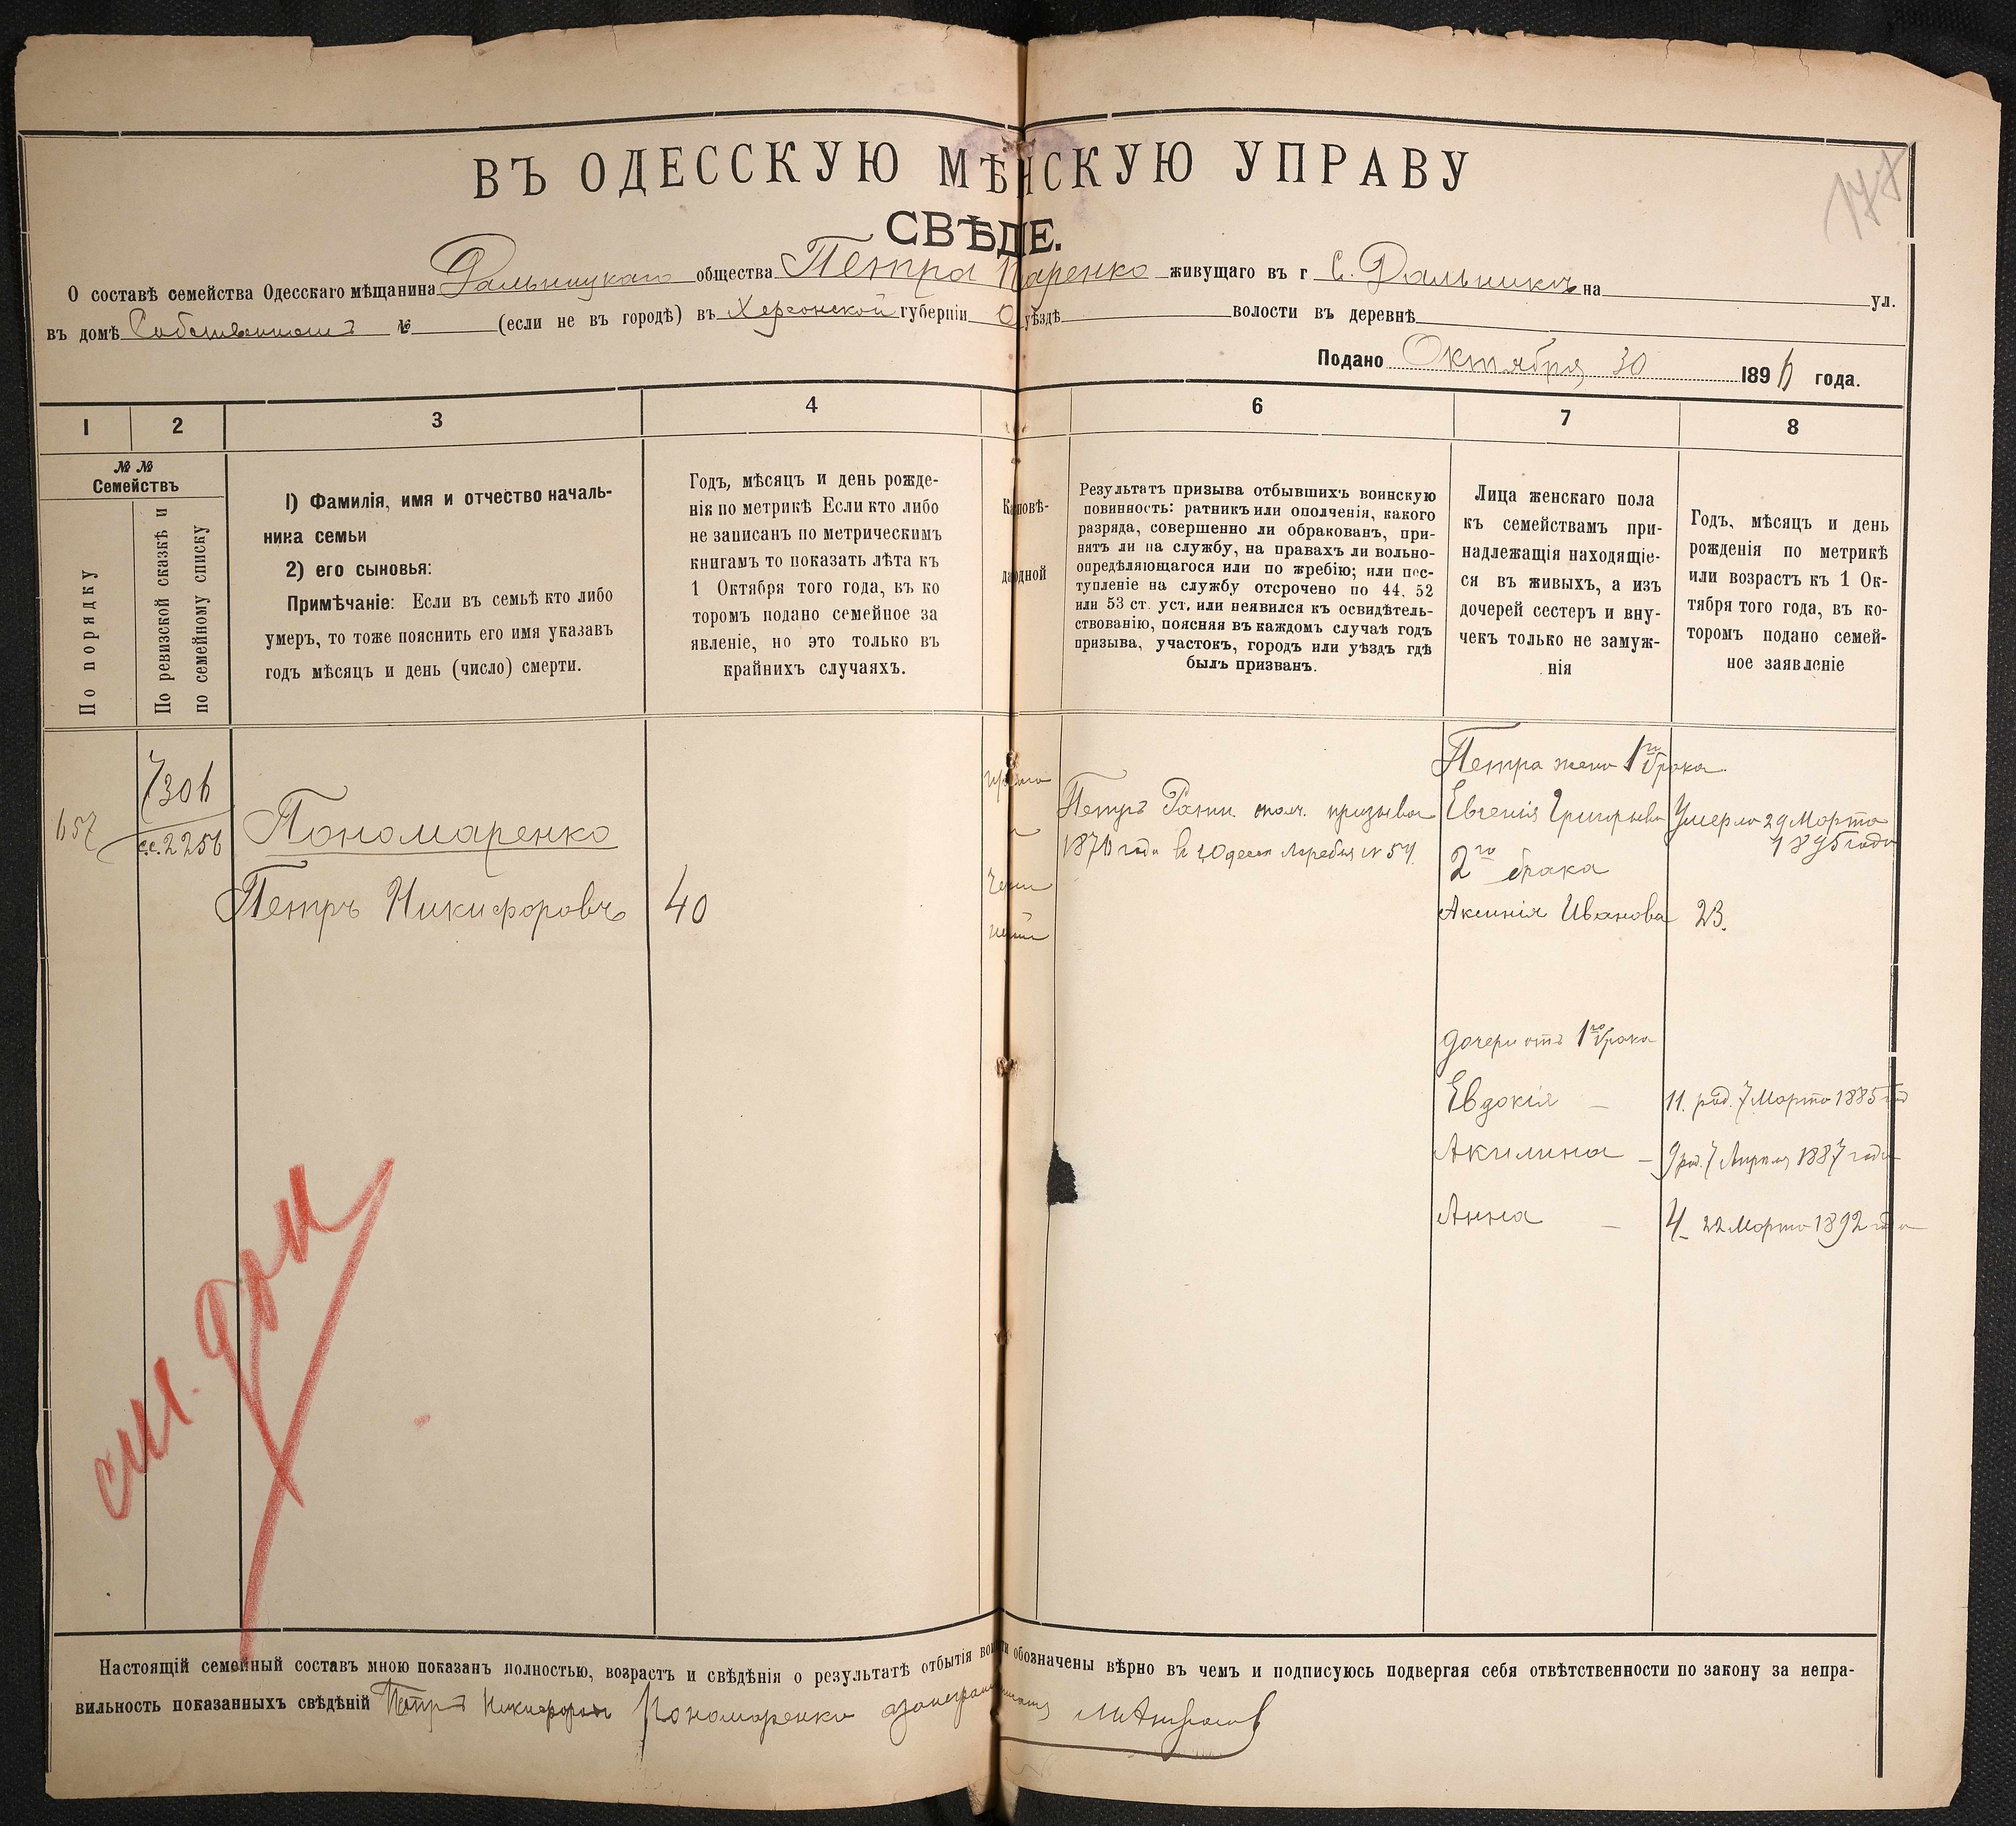 177
ВЪ ОДЕССКУЮ МѢ НСКУЮ УПРАВУ
СВѢД Е.
О составѣ семейства Одесскаго мѣщанина Дальницкаго общества Петра П аренко живущаго въ г С. Дальникъ на ул.
въ домѣ Собственномъ № (если не въ городѣ) въ Херсонской губерніи О уѣздѣ волости въ деревнѣ
Подано Октября 30 1896 года.
1 2 3 4 6 7 8
№ № Семействъ
По порядку
По ревизской сказкѣ и
по семейному списку
1) Фамилія, имя и отчество началь-
ника семьи
2) его сыновья:
Примѣчаніе: Если въ семьѣ кто либо
умеръ, то тоже пояснить его имя указавъ
годъ мѣсяцъ и день (число) смерти.
Годъ, мѣсяцъ и день рожде-
нія по метрикѣ Если кто либо
не записанъ по метрическимъ
книгамъ то показать лѣта къ
1 Октября того года, въ ко
торомъ подано семейное за
явленіе, но это только въ
крайнихъ случаяхъ.
Ка повѣ-
да одной
Результатъ призыва отбывшихъ воинскую
повинность: ратникъ или ополченія, какого
разряда, совершенно ли обракованъ, при-
нятъ ли на службу, на правахъ ли вольно-
опредѣляющагося или по жребію; или пос-
тупленіе на службу отсрочено по 44, 52
или 53 ст. уст, или неявился къ освидѣтель-
ствованію, поясняя въ каждомъ случаѣ годъ
призыва, участокъ, городъ или уѣздъ гдѣ
былъ призванъ.
Лица женскаго пола
къ семействамъ при-
надлежащія находящіе-
ся въ живыхъ, а изъ
дочерей сестеръ и вну-
чекъ только не замуж-
нія
Годъ, мѣсяцъ и день
рожденія по метрикѣ
или возрастъ къ 1 Ок-
тября того года, въ ко-
торомъ подано семей-
ное заявленіе
657
7306
с.с. 2256
Пономаренко
Петръ Никифоровъ 40
Петръ Ратн. опол. призыва
187 года в Одесса Жребья № 54.
Петра жена 1го брака
Евгенія Григорьева Умерла 29 Марта
1895 года
2го брака
Аксинія Иванова 23.
дочери отъ 1го брака
Евдокія – 11. род. 7 Марта 1885 год
Акилина – 9 род. 7 Апреля 1887 года
Анна – 4 – 22 Марта 1892 года
см. доп
Настоящій семейный составъ мною показанъ полностью, возрастъ и свѣдѣнія о результатѣ отбытія вои ти обозначены вѣрно въ чемъ и подписуюсь подвергая себя отвѣтственности по закону за непра-
вильность показанныхъ свѣдѣній Петръ Никифоровъ Пономаренко